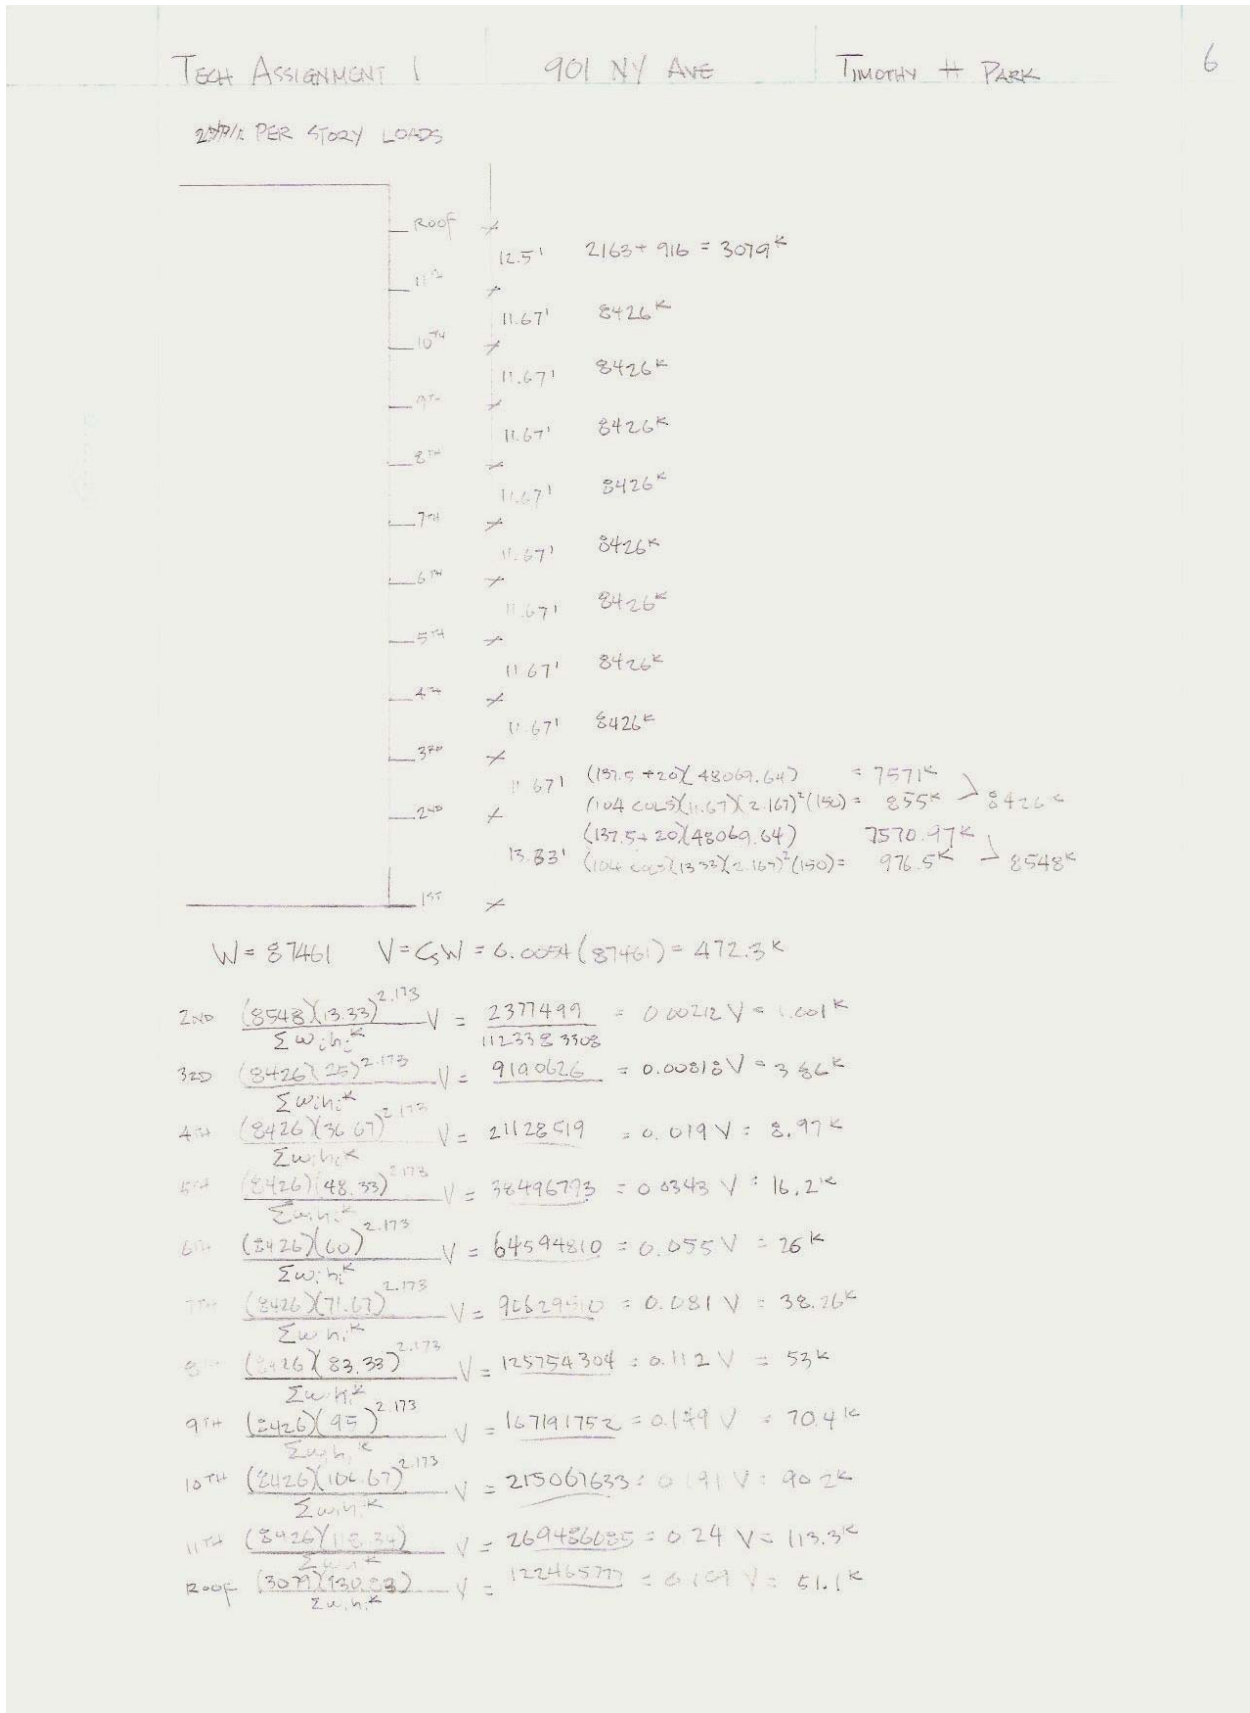 TECH ASSIGNMENT 1 901 NY AVE TIMOTHY H PARK 6
PER STORY LOADS
ROOF
12.5' 2163 + 916 = 3079ᴷ
11TH
11.67' 8426ᴷ
10TH
11.67' 8426ᴷ
9TH
11.67' 8426ᴷ
8TH
11.67' 8426ᴷ
7TH
11.67' 8426ᴷ
6TH
11.67' 8426ᴷ
5TH
11.67' 8426ᴷ
4TH
11.67' 8426ᴷ
3RD
11.67' (137.5 + 20)(48069.64) = 7571ᴷ
(104 COLS)(11.67)(2.167)²(150) = 855ᴷ > 8426ᴷ
2ND
(137.5 + 20)(48069.64) 7570.97ᴷ
13.33' (104 COLS)(13.33)(2.167)²(150) = 976.5ᴷ > 8548ᴷ
1ST
W = 87461 V = CsW = 0.0054(87461) = 472.3ᴷ
2ND (8548)(13.33)^2.173 / Σwᵢhᵢᴷ V = 2377499 / 1123383308 = 0.00212 V = 1.001ᴷ
3RD (8426)(25)^2.173 / Σwᵢhᵢᴷ V = 9190626 = 0.00818 V = 3.86ᴷ
4TH (8426)(36.67)^2.173 / Σwᵢhᵢᴷ V = 21128519 = 0.019 V = 8.97ᴷ
5TH (8426)(48.33)^2.173 / Σwᵢhᵢᴷ V = 38496793 = 0.0343 V = 16.2ᴷ
6TH (8426)(60)^2.173 / Σwᵢhᵢᴷ V = 64594810 = 0.055 V = 26ᴷ
7TH (8426)(71.67)^2.173 / Σwᵢhᵢᴷ V = = 0.081 V = 38.26ᴷ
8TH (8426)(83.33)^2.173 / Σwᵢhᵢᴷ V = 125754304 = 0.112 V = 53ᴷ
9TH (8426)(95)^2.173 / Σwᵢhᵢᴷ V = 167191752 = 0.149 V = 70.4ᴷ
10TH (8426)(106.67)^2.173 / Σwᵢhᵢᴷ V = 215067633 = 0.191 V = 90.2ᴷ
11TH (8426)(118.34) / Σwᵢhᵢᴷ V = 269486085 = 0.24 V = 113.3ᴷ
ROOF (3079)(130.83) / Σwᵢhᵢᴷ V = 122465777 = 0.109 V = 51.1ᴷ